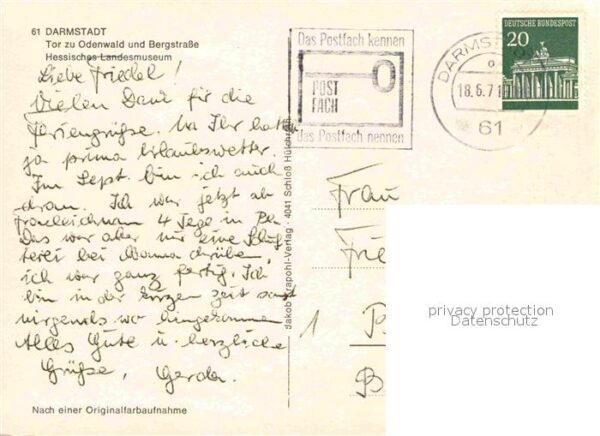 61 DARMSTADT
Tor zu Odenwald und Bergstraße
Hessisches Landesmuseum
Liebe Friedel!
Vielen Dank für die
Feriengrüße. Na Ihr hattet
ja prima Urlaubswetter.
Im Sept. bin ich auch
dran. Ich war jetzt ab
Fronleichnam 4 Tage in
Das war aber nur eine
bei Mama drüben,
ich war ganz fertig. Ich
bin in der kurzen Zeit sonst
nirgends wo hingekommen
Alles Gute u. herzliche
Grüße, Gerda.
Nach einer Originalfarbaufnahme
Jakob Krapohl-Verlag · 4041 Schloß Hülchrath
Das Postfach kennen
POST
FACH
das Postfach nennen
DARMS
18.5.71
61
DEUTSCHE BUNDESPOST
20
Frau
Frie
1
privacy protection
Datenschutz